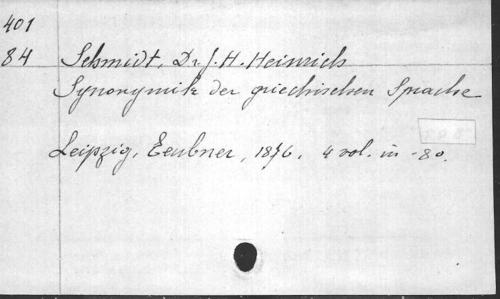 401
84 Schmidt, Dr. J. H. Heinrich
Synonymik der griechischen Sprache
Leipzig, Teubner, 1876. 4 vol. in -8o.